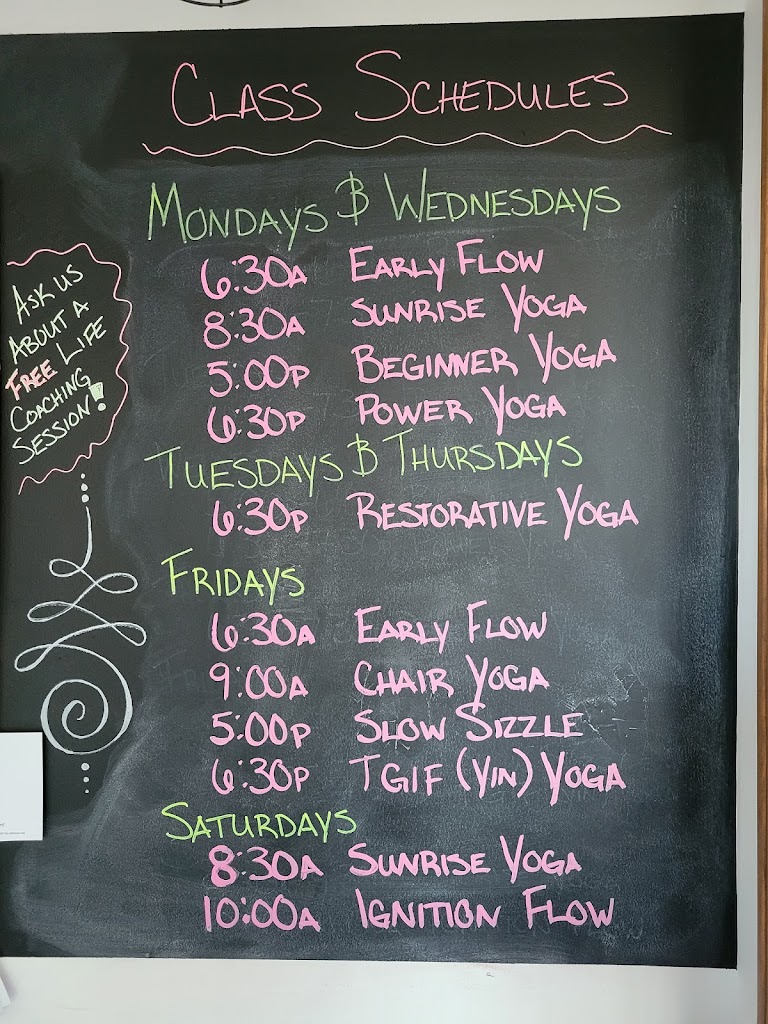 CLASS SCHEDULES
MONDAYS & WEDNESDAYS
6:30A EARLY FLOW
8:30A SUNRISE YOGA
5:00P BEGINNER YOGA
6:30P POWER YOGA
TUESDAYS & THURSDAYS
6:30P RESTORATIVE YOGA
FRIDAYS
6:30A EARLY FLOW
9:00A CHAIR YOGA
5:00P SLOW SIZZLE
6:30P TGIF (YIN) YOGA
SATURDAYS
8:30A SUNRISE YOGA
10:00A IGNITION FLOW
ASK US
ABOUT A
FREE LIFE
COACHING
SESSION!